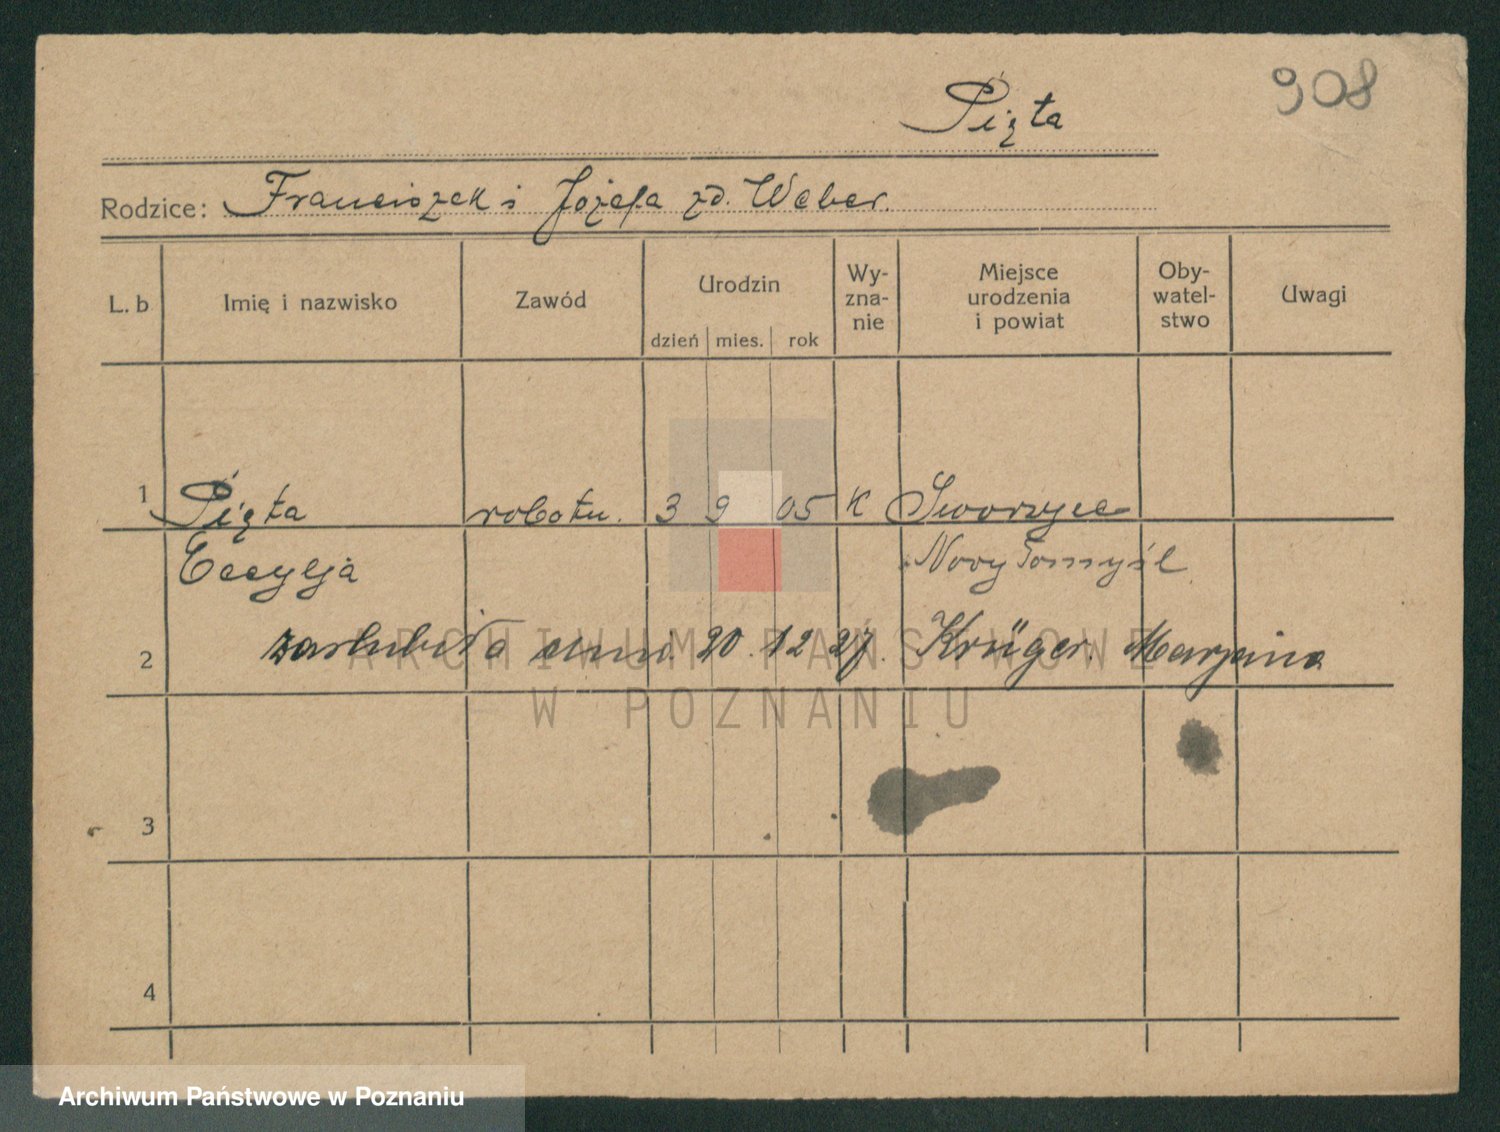 908
Pięta
Rodzice: Franciszek i Józefa zd. Weber.
L. b Imię i nazwisko Zawód Urodzin dzień mies. rok Wy-zna-nie Miejsce urodzenia i powiat Oby-watel-stwo Uwagi
1 Pięta robotn. 3 9 05 K Sworzyce
Cecylja Nowy Tomyśl
2 zaślubiła dnia 20. 12 27. Krüger. Marjana
3
4
ARCHIWUM PAŃSTWOWE
W POZNANIU
Archiwum Państwowe w Poznaniu